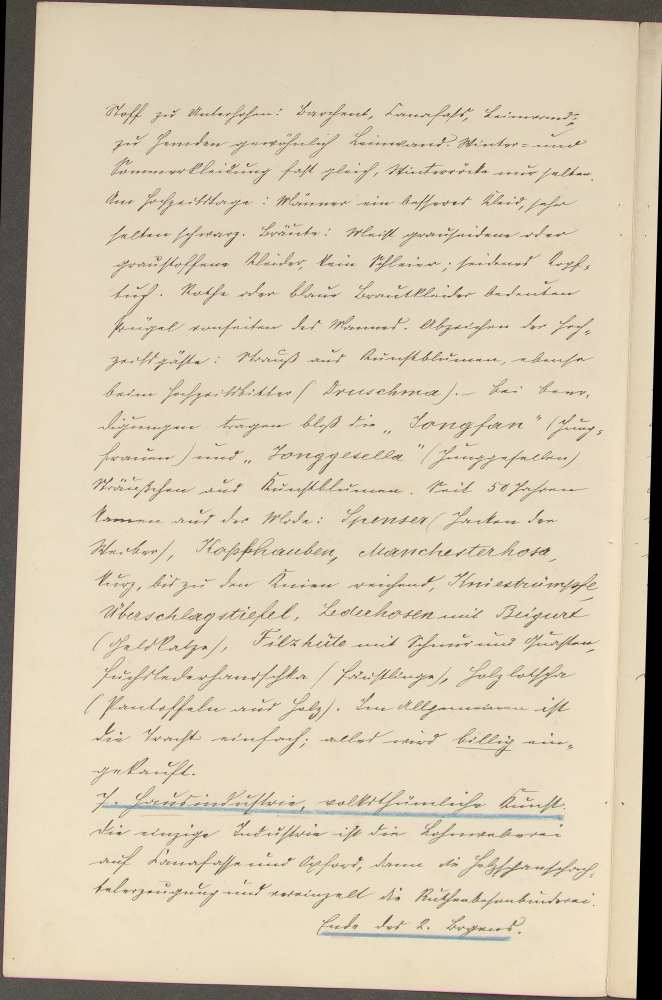 Stoff zu Unterhosen: Barchent, Canafass, Leinwand;
zu Hemden gewöhnlich Leinwand. Winter- und
Sommerkleidung fast gleich, Winterröcke nur selten.
Am Hochzeitstage: Männer ein besseres Kleid, sehr
selten schwarz. Bräute: Meist grauseidene oder
graustoffene Kleider, kein Schleier; seidenes Kopf-
tuch. Rothe oder blaue Brautkleider bedeuten
Prügel vonseiten des Mannes. Abzeichen der Hoch-
zeitsgäste: Strauß aus Kunstblumen, ebenso
beim Hochzeitsbitter (Druschma). – Bei Beer-
digungen tragen bloß die „Jongfan" (Jung-
frauen) und „Jonggesella" (Junggesellen)
Sträußchen aus Kunstblumen. Seit 50 Jahren
kamen aus der Mode: Spenser (Jacken der
Weiber), Kopfhauben, Manchesterhosa,
kurz, bis zu den Knien reichend, Kniestrümpfe,
Überschlagstiefel, Lederhosen mit Beigurt
(Geldkatze), Filzhüte mit Schnur und Quasten,
Fuchslederhandschka (Fäustlinge), Holzlotscha
(Pantoffeln aus Holz). Im Allgemeinen ist
die Tracht einfach; alles wird billig ein-
gekauft.
7. Hausindustrie, volksthümliche Kunst.
Die einzige Industrie ist die Lohnweberei
auf Canafasse und Oxford, dann die Holzspanschach-
telerzeugung und vereinzelt die Ruthenbesenbinderei.
Ende des 2. Bogens.